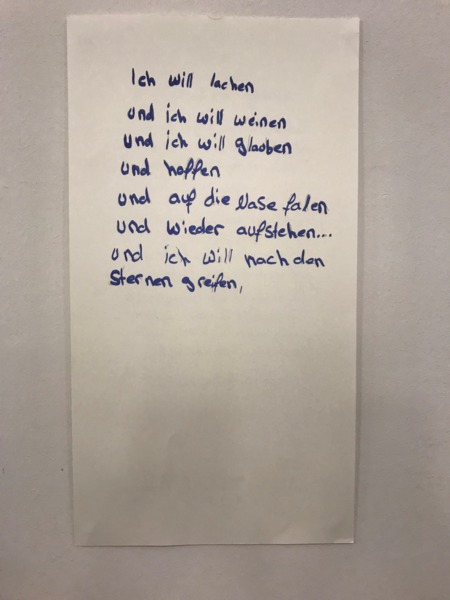 Ich will lachen
und ich will weinen
und ich will glauben
und hoffen
und auf die Nase falen
und wieder aufstehen...
und ich will nach den
Sternen greifen,